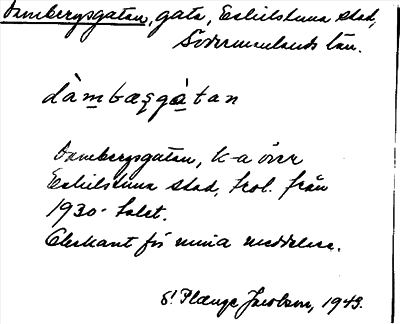 Dambergsgatan, gata, Eskilstuna stad,
Södermanlands län.
dàmbæșgàtan
Dambergsgatan, k-a över
Eskilstuna stad, trol. från
1930-talet.
Obekant för mina meddelare.
S! Plænge Jacobson, 1943.